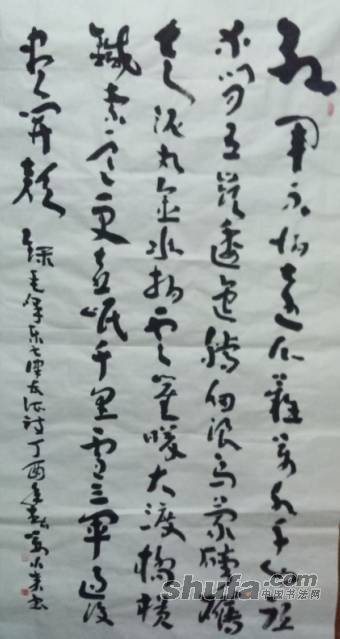 红軍不怕远征難萬水千山只
等闲五岭逶迤腾细浪乌蒙磅礴
走泥丸金水拍云崖暖大渡桥横
鐵索寒更喜岷千里雪三軍過後
尽开颜 錄毛泽东七律长征诗丁酉年
shufa.com
中国书法网